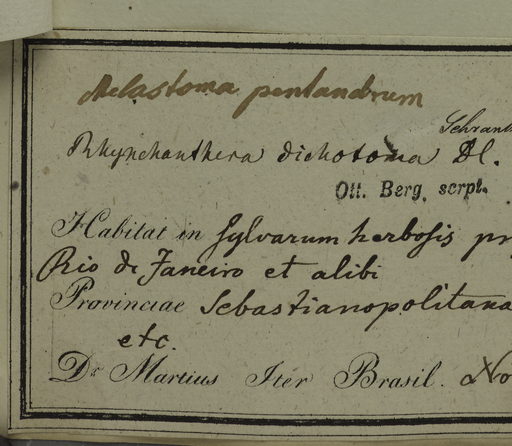 Melastoma pentandrum
Schrank
Rhynchanthera dichotoma Dl.
Ott. Berg. scrpt.
Habitat in sylvarum herbosis pr
Rio de Janeiro et alibi
Provinciae Sebastianopolitana
etc.
Dr Martius Iter Brasil. No